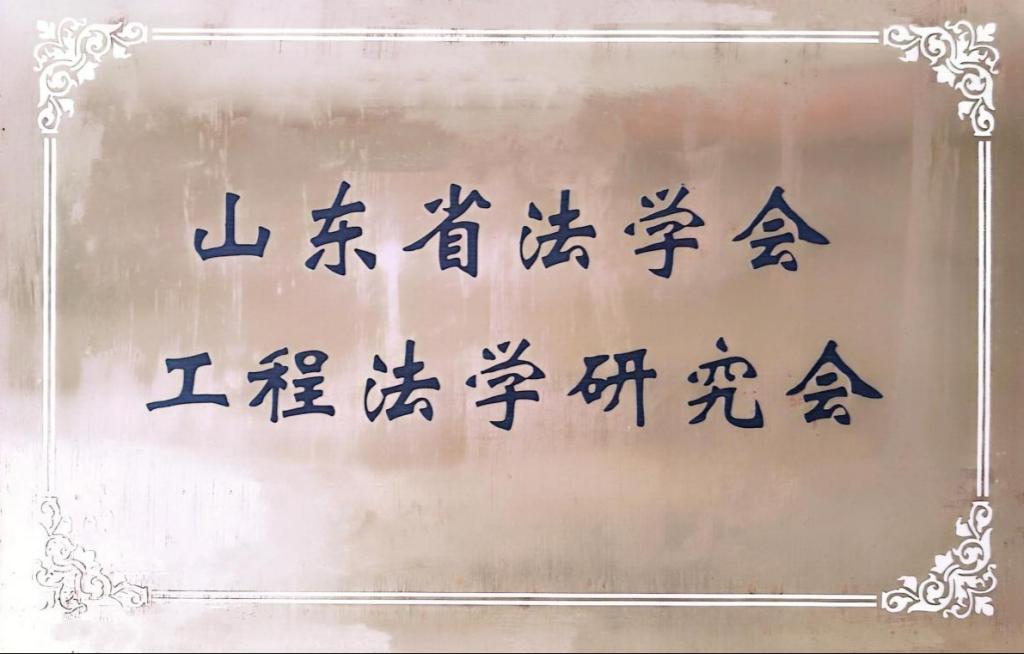 山东省法学会
工程法学研究会